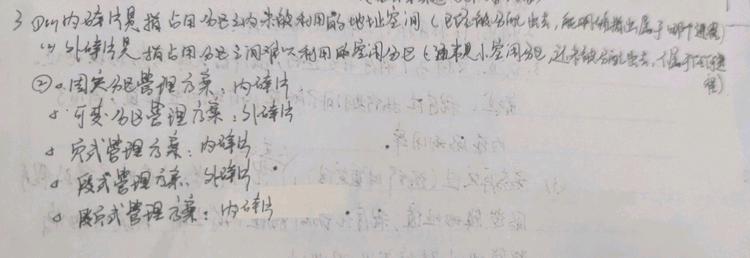 3 ①(1)内碎片是指占用分区之内未被利用的地址空间(已经被分配出去,能明确指出属于哪个进程)
(2)外碎片是指占用分区之间难以利用的空闲分区(通常是小空闲分区,还未被分配出去,不属于任何进
程)
② 固定分区管理方案:内碎片
可变分区管理方案:外碎片
页式管理方案:内碎片
段式管理方案:外碎片
段页式管理方案:内碎片